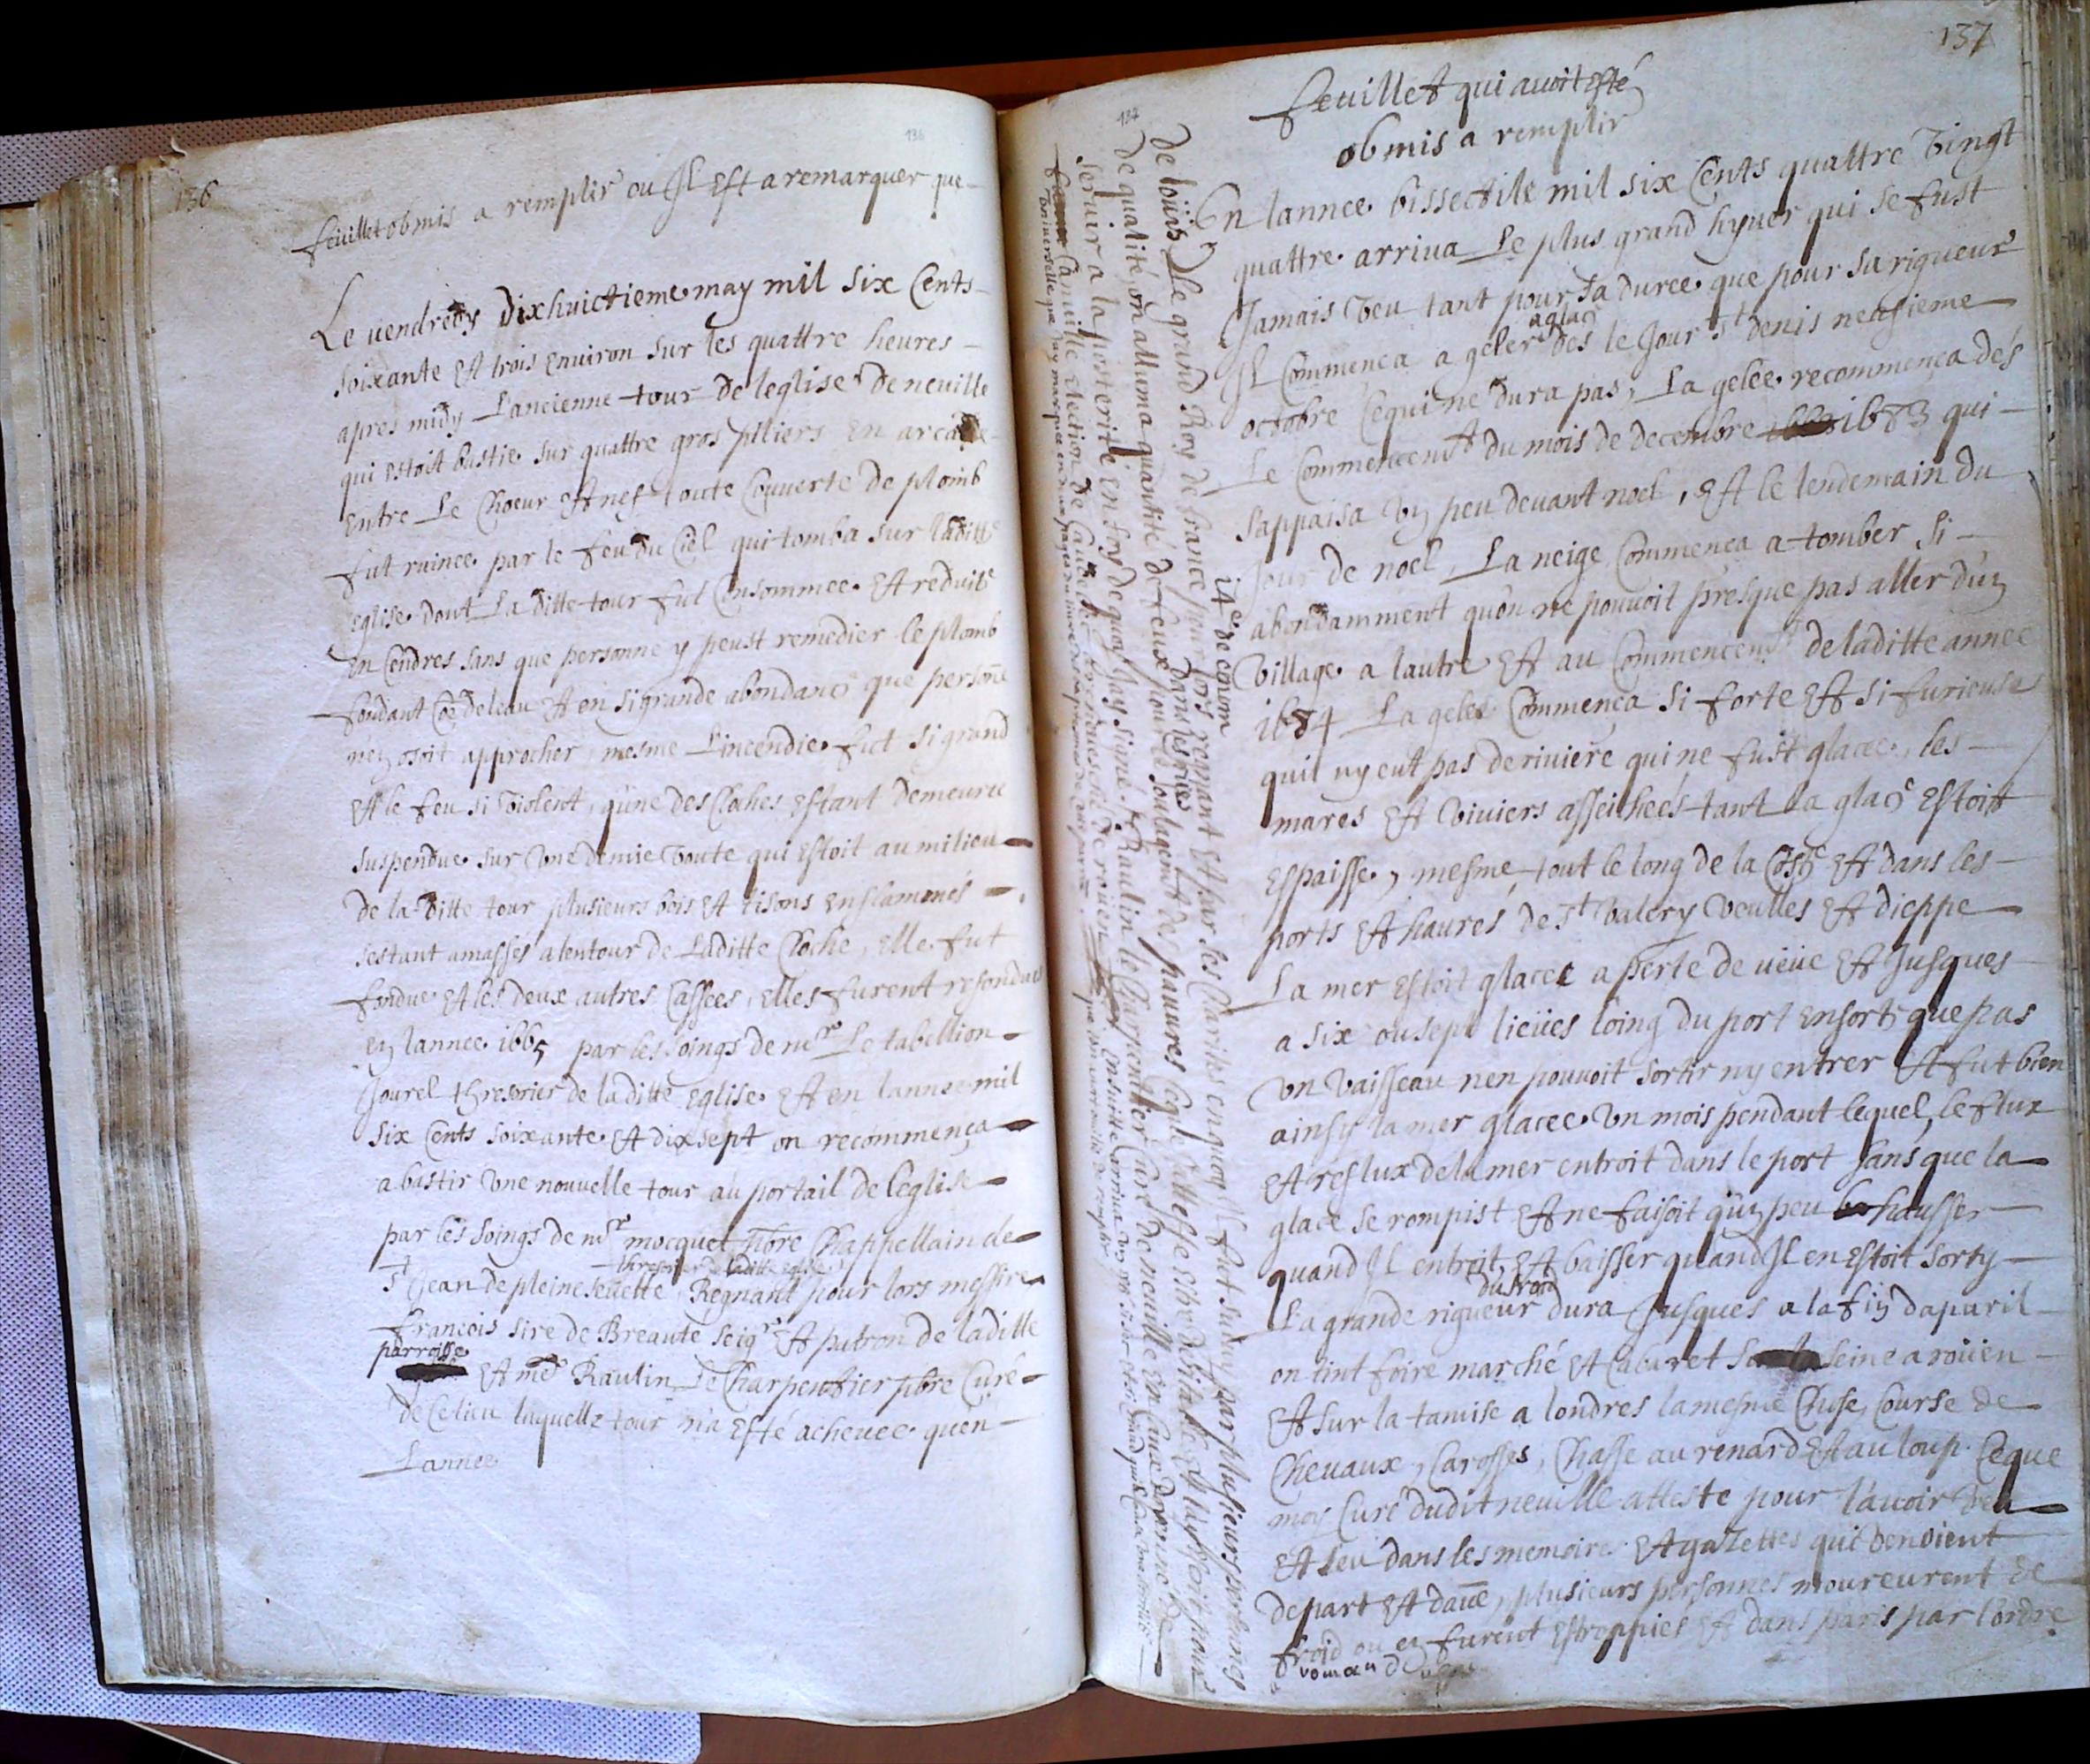 136
136
feuillet obmis a remplir ou Il Est a remarquer que
Le vendredy dixhuictieme may mil six Cents
soixante Et trois Environ sur les quattre heures
apres midy Lancienne tour de leglise de neuille
qui Estoit bastie sur quattre gros pilliers En arcade
Entre Le Choeur Et nef toute Couuerte de plomb
fut ruinee par le feu du Ciel qui tomba sur laditte
Eglise dont La ditte tour fut Consommee Et reduite
En Cendres sans que personne y peust remedier le plomb
fondant Coe de leau Et en si grande abondance que persone
nen osoit approcher, mesme Lincendie fut si grand
Et le feu si violent, qune des Cloches Estant demeuree
suspendue sur vne demie voute qui Estoit au milieu
de la ditte tour plusieurs bois Et tisons Enflammés
sestant amassés alentour de Laditte Cloche, Elle fut
fondue Et les deux autres Cassees, Elles furent refondues
en lannee 1665 par les soings de mr Le tabellion
Jourel thresorier de laditte Eglise Et en lannee mil
six Cents soixante Et dix sept on recommença
a bastir vne nouuelle tour au portail de leglise
par les soings de mr mocquet pbre Chappellain de
thresorier de laditte eglise
st Jean de pleine seuette Regnant pour lors messire
francois sire de Breaute seigr Et patron de laditte
parroisse
Et me Raulin Le Charpentier pbre Curé
de Ce lieu laquelle tour na Esté acheuee quen
Lannee
137
137
feuillet qui auoit Esté
obmis a remplir
En lannee bissectile mil six Cents quattre vingt
quattre arriua Le plus grand hyuer qui se fust
Jamais veu tant pour sa duree que pour sa rigueur
a glace
Il Commença a geler des le Jour st denis neufieme
octobre Ce qui ne dura pas, La gelee recommença dés
Le Commencemt du mois de decembre 1683 qui
sappaisa vn peu deuant noel, Et le lendemain du
Jour de noel, La neige Commença a tomber si
abondamment quon ne pouuoit presque pas aller dun
village a lautre Et au Commencemt de laditte annee
1684 La gelee Commença si forte Et si furieuse
quil ny eut pas de riuiere qui ne fust glacee, les
mares Et viuiers asseichees tant La glace Estoit
Espaisse, mesme tout le long de la Coste Et dans les
ports Et haures de st valery veulles Et dieppe
La mer Estoit glacee a perte de ueüe Et Jusques
a six ou sept lieües loing du port Ensorte que pas
vn vaisseau nen pouuoit sortir ny entrer Et fut bien
ainsy la mer glacee vn mois pendant lequel, le flux
Et reflux de la mer entroit dans le port sans que la
glace se rompist Et ne faisoit qun peu hausser
quand Il entroit, Et baisser quand Il en Estoit sorty
du froid
La grande rigueur dura Jusques a la fin daparil
on tint foire marché Et Cabaret seine a roüen
Et sur la tamise a londres la mesme Chose, Course de
Cheuaux, Carosses, Chasse au renard Et au loup. Ce que
moy Curé dudit neuille atteste pour lauoir veu
Et leu dans les memoires Et gazettes qui venoient
de part Et daue, plusieurs personnes moureurent de
froid ou en furent Estroppiés Et dans paris par lordre
14e de ce nom
de loüis Le grand Roy de france pour lors regnant Et sur ses Charités en quoy Il fut suiuy par plusieurs personnes
dans les rües
de qualité on alluma quantité de feux pour le soulagemt des pauures
seruir a la posterité en foy de quoy Jay signé. Raulin le Charpentier Curé de neuille En Caux